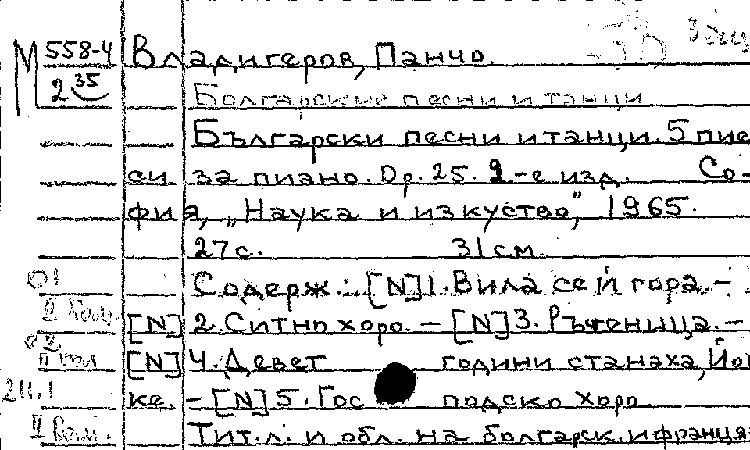 М 558-4 Владигеров, Панчо.
2 35
Болгарские песни и танци
Български песни и танци. 5 пие
си за пиано. Ор. 25. 2-е изд. Со-
фиа, „Наука и изкуство", 1965.
27 с. 31 см.
Содерж.: [N] 1. Вила се й гора. –
[N] 2. Ситно хоро. – [N] 3. Ръченица. –
[N] 4. Девет години станаха, Йо
ке. – [N] 5. Гос подско хоро.
Тит. л. и обл. на болгарск. и франц